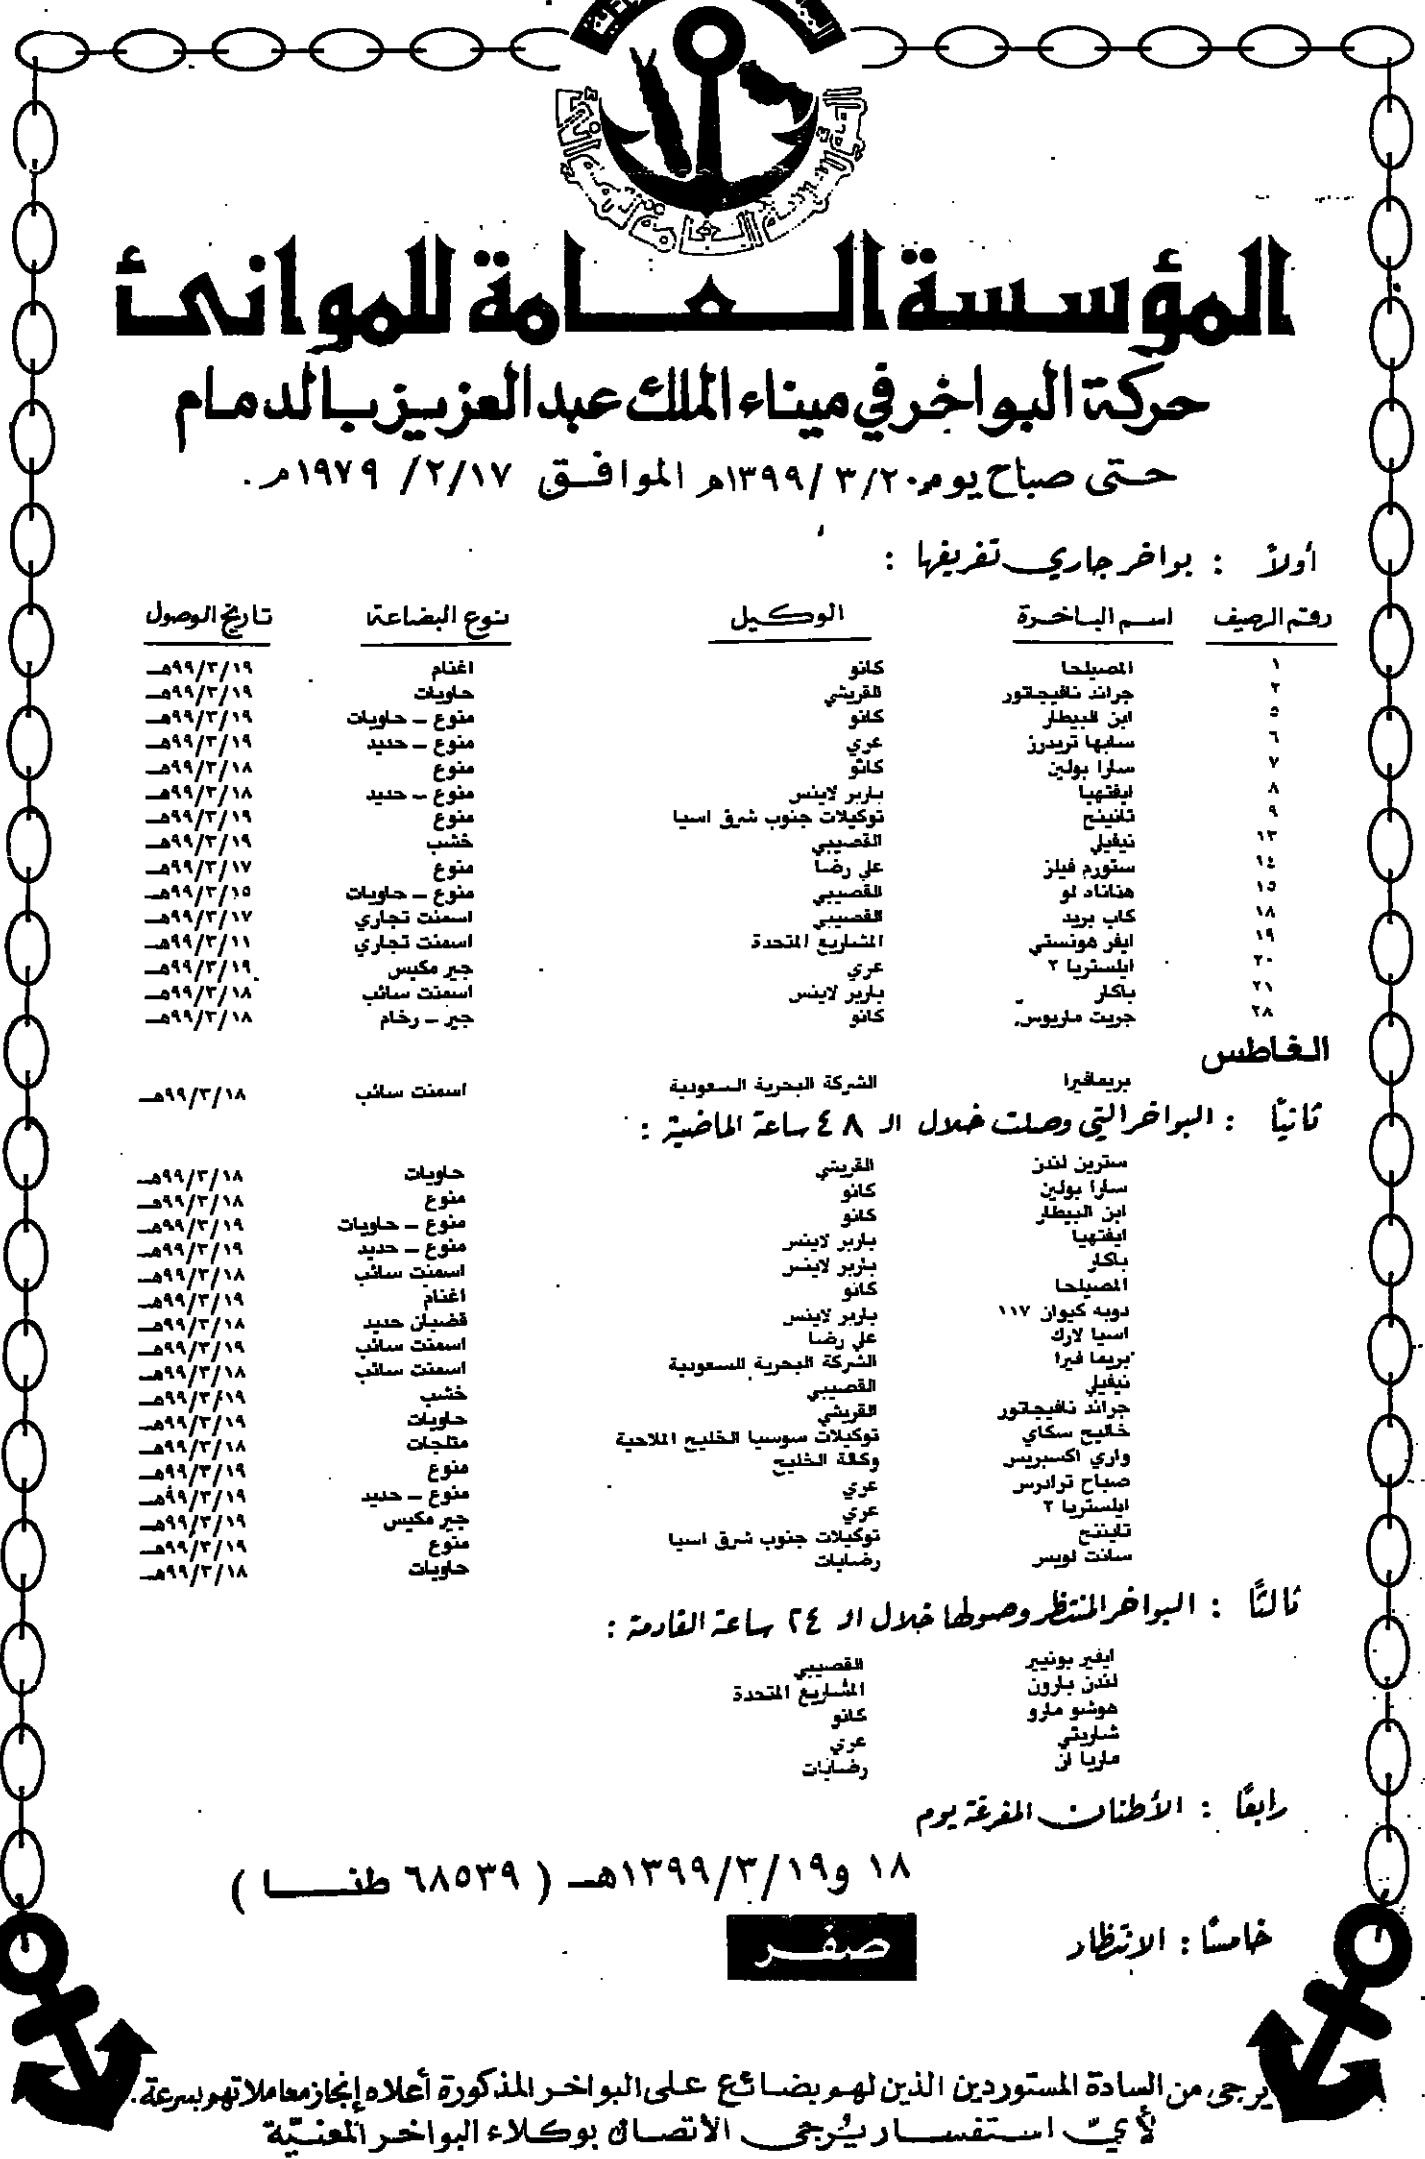 المؤسسة العامة للموانئ
حركة البواخر في ميناء الملك عبد العزيز بالدمام
حتى صباح يوم ١٣٩٩/٣/٢٠هـ الموافق ١٩٧٩/٢/١٧م.
أولاً : بواخر جاري تفريغها :
رقم الرصيف اسم الباخرة الوكيل نوع البضاعة تاريخ الوصول
١ المصيلحا كانو اغنام ٩٩/٣/١٩هـ
٢ جراند نافيجاتور القريشي حاويات ٩٩/٣/١٩هـ
٥ ابن البيطار كانو منوع – حاويات ٩٩/٣/١٩هـ
٦ سابها تريدرز عري منوع – حديد ٩٩/٣/١٩هـ
٧ سارا بولين كانو منوع ٩٩/٣/١٨هـ
٨ ايفتهيا باربر لاينس منوع – حديد ٩٩/٣/١٨هـ
٩ تانينج توكيلات جنوب شرق اسيا منوع ٩٩/٣/١٩هـ
١٣ نيفيلي القصيبي خشب ٩٩/٣/١٩هـ
١٤ ستورم فيلز علي رضا منوع ٩٩/٣/١٧هـ
١٥ هناناد لو القصيبي منوع – حاويات ٩٩/٣/١٥هـ
١٨ كاب بريد القصيبي اسمنت تجاري ٩٩/٣/١٧هـ
١٩ ايفر هونستي المشاريع المتحدة اسمنت تجاري ٩٩/٣/١١هـ
٢٠ ايلستريا ٢ عري جير مكيس ٩٩/٣/١٩هـ
٢١ باكار باربر لاينس اسمنت سائب ٩٩/٣/١٨هـ
٢٨ جريت ماريوس كانو جير – رخام ٩٩/٣/١٨هـ
الغاطس
بريمافيرا الشركة البحرية السعودية اسمنت سائب ٩٩/٣/١٨هـ
ثانياً : البواخر التي وصلت خلال الـ ٤٨ ساعة الماضية :
سترين لندن القريشي حاويات ٩٩/٣/١٨هـ
سارا بولين كانو منوع ٩٩/٣/١٨هـ
ابن البيطار كانو منوع – حاويات ٩٩/٣/١٩هـ
ايفتهيا باربر لاينس منوع – حديد ٩٩/٣/١٩هـ
باكار باربر لاينس اسمنت سائب ٩٩/٣/١٨هـ
المصيلحا كانو اغنام ٩٩/٣/١٩هـ
دوبه كيوان ١١٧ باربر لاينس قضبان حديد ٩٩/٣/١٨هـ
اسيا لارك علي رضا اسمنت سائب ٩٩/٣/١٩هـ
بريما فيرا الشركة البحرية للسعودية اسمنت سائب ٩٩/٣/١٨هـ
نيفيلي القصيبي خشب ٩٩/٣/١٩هـ
جراند نافيجاتور القريشي حاويات ٩٩/٣/١٩هـ
خاليج سكاي توكيلات سوسيا الخليج الملاحية مثلجات ٩٩/٣/١٨هـ
واري اكسبريس وكالة الخليج منوع ٩٩/٣/١٩هـ
صباح ترادرس عري منوع – حديد ٩٩/٣/١٩هـ
ايلستريا ٢ عري جير مكيس ٩٩/٣/١٩هـ
تاينتج توكيلات جنوب شرق اسيا منوع ٩٩/٣/١٩هـ
سانت لويس رضايات حاويات ٩٩/٣/١٨هـ
ثالثاً : البواخر المنتظر وصولها خلال الـ ٢٤ ساعة القادمة :
ايفير بونيير القصيبي
لندن بارون المشاريع المتحدة
هوشو مارو كانو
شاريتي عري
ماريا ان رضايات
رابعاً : الأطنان المفرغة يوم
١٨ و١٣٩٩/٣/١٩هـ ( ٦٨٥٣٩ طنا )
خامساً : الانتظار صفر
يرجى من السادة المستوردين الذين لهم بضائع على البواخر المذكورة أعلاه إنجاز معاملاتهم بسرعة.
لأيّ استفسار يُرجى الاتصال بوكلاء البواخر المعنيّة